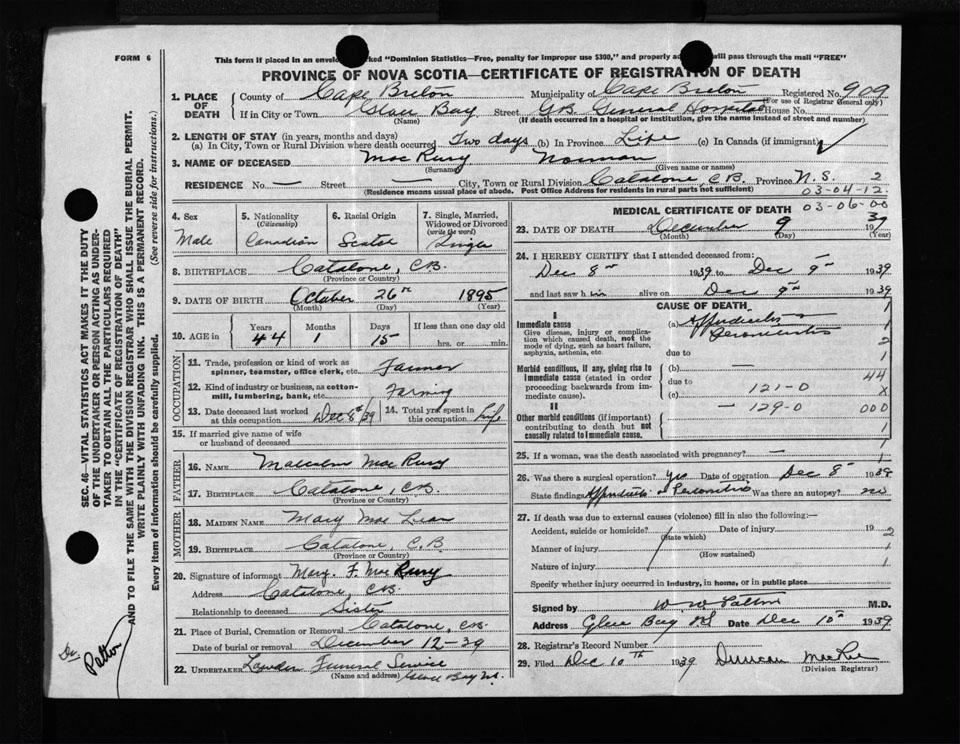 FORM 6
This form if placed in an envelope marked "Dominion Statistics—Free, penalty for improper use $300," and properly addressed will pass through the mail "FREE"
PROVINCE OF NOVA SCOTIA—CERTIFICATE OF REGISTRATION OF DEATH
1. PLACE OF DEATH
County of Cape Breton Municipality of Cape Breton Registered No. 909
(For use of Registrar General only)
If in City or Town Glace Bay Street G.B. General Hospital House No.
(Name) (If death occurred in a hospital or institution, give the name instead of street and number)
2. LENGTH OF STAY (in years, months and days)
(a) In City, Town or Rural Division where death occurred Two days (b) In Province Life (c) In Canada (if immigrant) ✓
3. NAME OF DECEASED Mac Rury Norman
(Surname) (Given name or names)
RESIDENCE No. — Street — City, Town or Rural Division Catalone C.B. Province N.S. 2
(Residence means usual place of abode. Post Office Address for residents in rural parts not sufficient) 03-04-12
4. Sex
Male
5. Nationality
(Citizenship)
Canadian
6. Racial Origin
Scotch
7. Single, Married, Widowed or Divorced
(write the word)
Single
8. BIRTHPLACE Catalone, C.B.
(Province or Country)
9. DATE OF BIRTH October 26th 1895
(Month) (Day) (Year)
10. AGE in Years Months Days If less than one day old
44 1 15 hrs. or min.
OCCUPATION
11. Trade, profession or kind of work as spinner, teamster, office clerk, etc. Farmer
12. Kind of industry or business, as cotton-mill, lumbering, bank, etc. Farming
13. Date deceased last worked at this occupation Dec 8th/39
14. Total yrs. spent in this occupation Life
15. If married give name of wife or husband of deceased
FATHER
16. NAME Malcolm Mac Rury
17. BIRTHPLACE Catalone, C.B.
(Province or Country)
MOTHER
18. MAIDEN NAME Mary Mac Lean
19. BIRTHPLACE Catalone, C.B.
(Province or Country)
20. Signature of informant Mary. F. Mac Rury
Address Catalone, C.B.
Relationship to deceased Sister
21. Place of Burial, Cremation or Removal Catalone, C.B.
Date of burial or removal December 12-39
22. UNDERTAKER Funeral Service
(Name and address) Glace Bay N.S.
MEDICAL CERTIFICATE OF DEATH 03-06-00
23. DATE OF DEATH December 9 1939
(Month) (Day) (Year)
24. I HEREBY CERTIFY that I attended deceased from:
Dec 8th 1939 to Dec 9th 1939
and last saw him alive on Dec 9th 1939
CAUSE OF DEATH
I
Immediate cause (a) Appendicitis Peritonitis
Give disease, injury or complication which caused death, not the mode of dying, such as heart failure, asphyxia, asthenia, etc
due to
Morbid conditions, if any, giving rise to immediate cause (stated in order proceeding backwards from immediate cause).
(b) —
due to
(c) 121-0
II
Other morbid conditions (if important) contributing to death but not causally related to immediate cause.
— 129-0
1
1
2
1
44
X
000
1
25. If a woman, was the death associated with pregnancy? — 1
26. Was there a surgical operation? yes Date of operation Dec 8 1939
State findings Appendicitis Peritonitis Was there an autopsy? no
27. If death was due to external causes (violence) fill in also the following:—
Accident, suicide or homicide? Date of injury 19 2
(State which)
Manner of injury 1
(How sustained)
Nature of injury 1
Specify whether injury occurred in industry, in home, or in public place
Signed by W W Patton M.D.
Address Glace Bay NS Date Dec 10th 1939
28. Registrar's Record Number
29. Filed Dec 10th 1939 Duncan
(Division Registrar)
SEC. 46—VITAL STATISTICS ACT MAKES IT THE DUTY OF THE UNDERTAKER OR PERSON ACTING AS UNDERTAKER TO OBTAIN ALL THE PARTICULARS REQUIRED IN THE "CERTIFICATE OF REGISTRATION OF DEATH"
AND TO FILE THE SAME WITH THE DIVISION REGISTRAR WHO SHALL ISSUE THE BURIAL PERMIT.
WRITE PLAINLY WITH UNFADING INK. THIS IS A PERMANENT RECORD.
Every item of Information should be carefully supplied. (See reverse side for instructions.)
Dr Patton